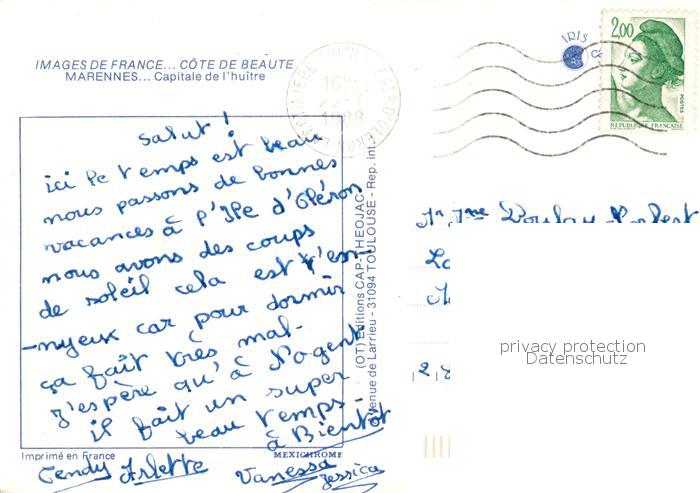 IMAGES DE FRANCE... CÔTE DE BEAUTE
MARENNES... Capitale de l'huître
Salut !
ici le temps est beau
nous passons de bonnes
vacances à l'Ile d'Oléron
nous avons des coups
de soleil cela est t'en-
-nyeux car pour dormir
ça fait très mal-
J'espère qu'à Nogent
il fait un super
beau temps-
à Bientôt
Cendy Arlette Vanessa
Jessica
Imprimé en France
MEXICHROME
(OT) Editions CAP-THEOJAC-
venue de Larrieu - 31094 TOULOUSE - Rep. int.
ST-P. D'OLERON
1988
IRIS
2,00
POSTES
REPUBLIQUE FRANCAISE
privacy protection
Datenschutz